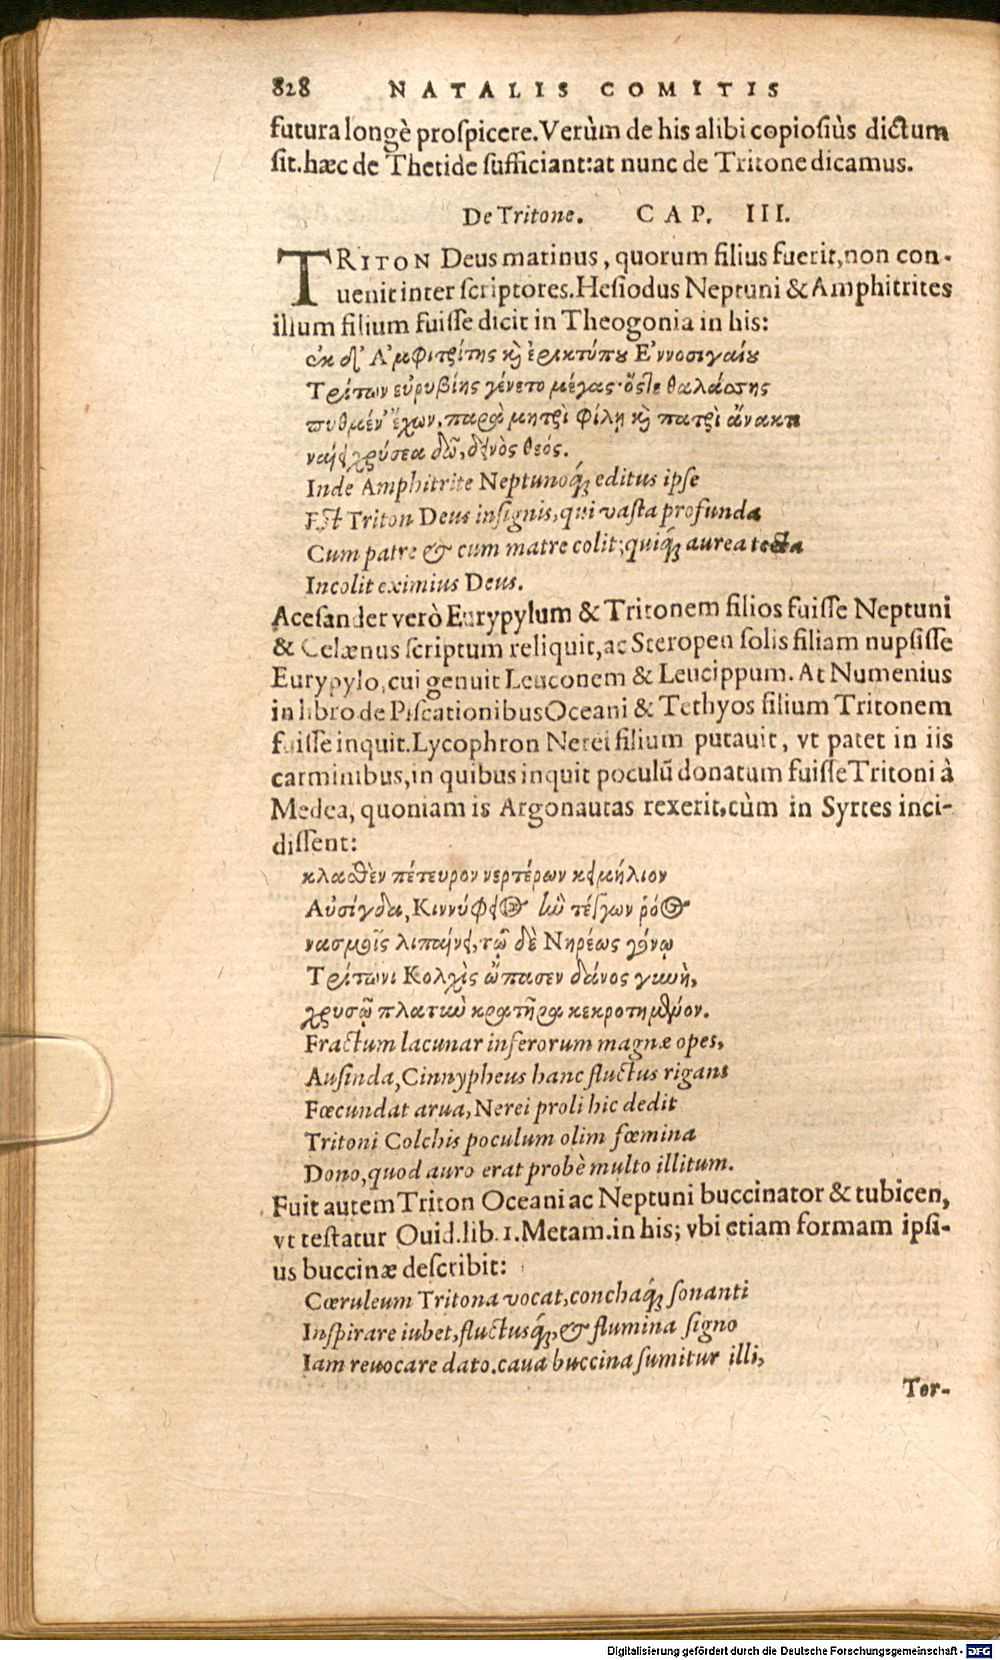 828 NATALIS COMITIS
futura longè proſpicere. Verùm de his alibi copioſiùs dictum
ſit. hæc de Thetide ſufficiant: at nunc de Tritone dicamus.
De Tritone. CAP. III.
TRITON Deus marinus, quorum filius fuerit, non con-
uenit inter ſcriptores. Heſiodus Neptuni & Amphitrites
illum filium fuiſſe dicit in Theogonia in his:
ἐκ δ' Ἀμφιτρίτης κὶ ἐρικτύπου Ἐννοσιγαίου
Τρίτων εὐρυβίης γένετο μέγας· ὅστε θαλάσσης
πυθμέν' ἔχων, παρὰ μητρὶ φίλῃ κὶ πατρὶ ἄνακτι
ναίει χρύσεα δῶ, δεινὸς θεός.
Inde Amphitrite Neptunoq́ꝫ editus ipſe
Eſt Triton Deus inſignis, qui vaſta profunda
Cum patre & cum matre colit; quiq́ꝫ aurea tecta
Incolit eximius Deus.
Aceſander verò Eurypylum & Tritonem filios fuiſſe Neptuni
& Celænus ſcriptum reliquit, ac Steropen ſolis filiam nupſiſſe
Eurypylo, cui genuit Leuconem & Leucippum. At Numenius
in libro de Piſcationibus Oceani & Tethyos filium Tritonem
fuiſſe inquit. Lycophron Nerei filium putauit, vt patet in iis
carminibus, in quibus inquit poculũ donatum fuiſſe Tritoni à
Medea, quoniam is Argonautas rexerit, cùm in Syrtes inci-
diſſent:
κλαθὲν πέτευρον νερτέρων κειμήλιον
Αὐσίγδα, Κιννύφειος ἣν τέγγων ῥόος
νασμοῖς λιπαίνει, τῷ δὲ Νηρέως γόνῳ
Τρίτωνι Κολχὶς ὤπασεν δάνος γυνὴ,
χρυσῷ πλατιὺ κρατῆρα κεκροτημένον.
Fractum lacunar inferorum magnæ opes,
Auſinda, Cinnypheus hanc fluctus rigans
Fœcundat arua, Nerei proli hic dedit
Tritoni Colchis poculum olim fœmina
Dono, quod auro erat probè multo illitum.
Fuit autem Triton Oceani ac Neptuni buccinator & tubicen,
vt teſtatur Ouid. lib. 1. Metam. in his; vbi etiam formam ipſi-
us buccinæ deſcribit:
Cœruleum Tritona vocat, conchaq́ꝫ ſonanti
Inſpirare iubet, fluctusq́ꝫ, & flumina ſigno
Iam reuocare dato. caua buccina ſumitur illi,
Tor-
Digitalisierung gefördert durch die Deutsche Forschungsgemeinschaft - DFG